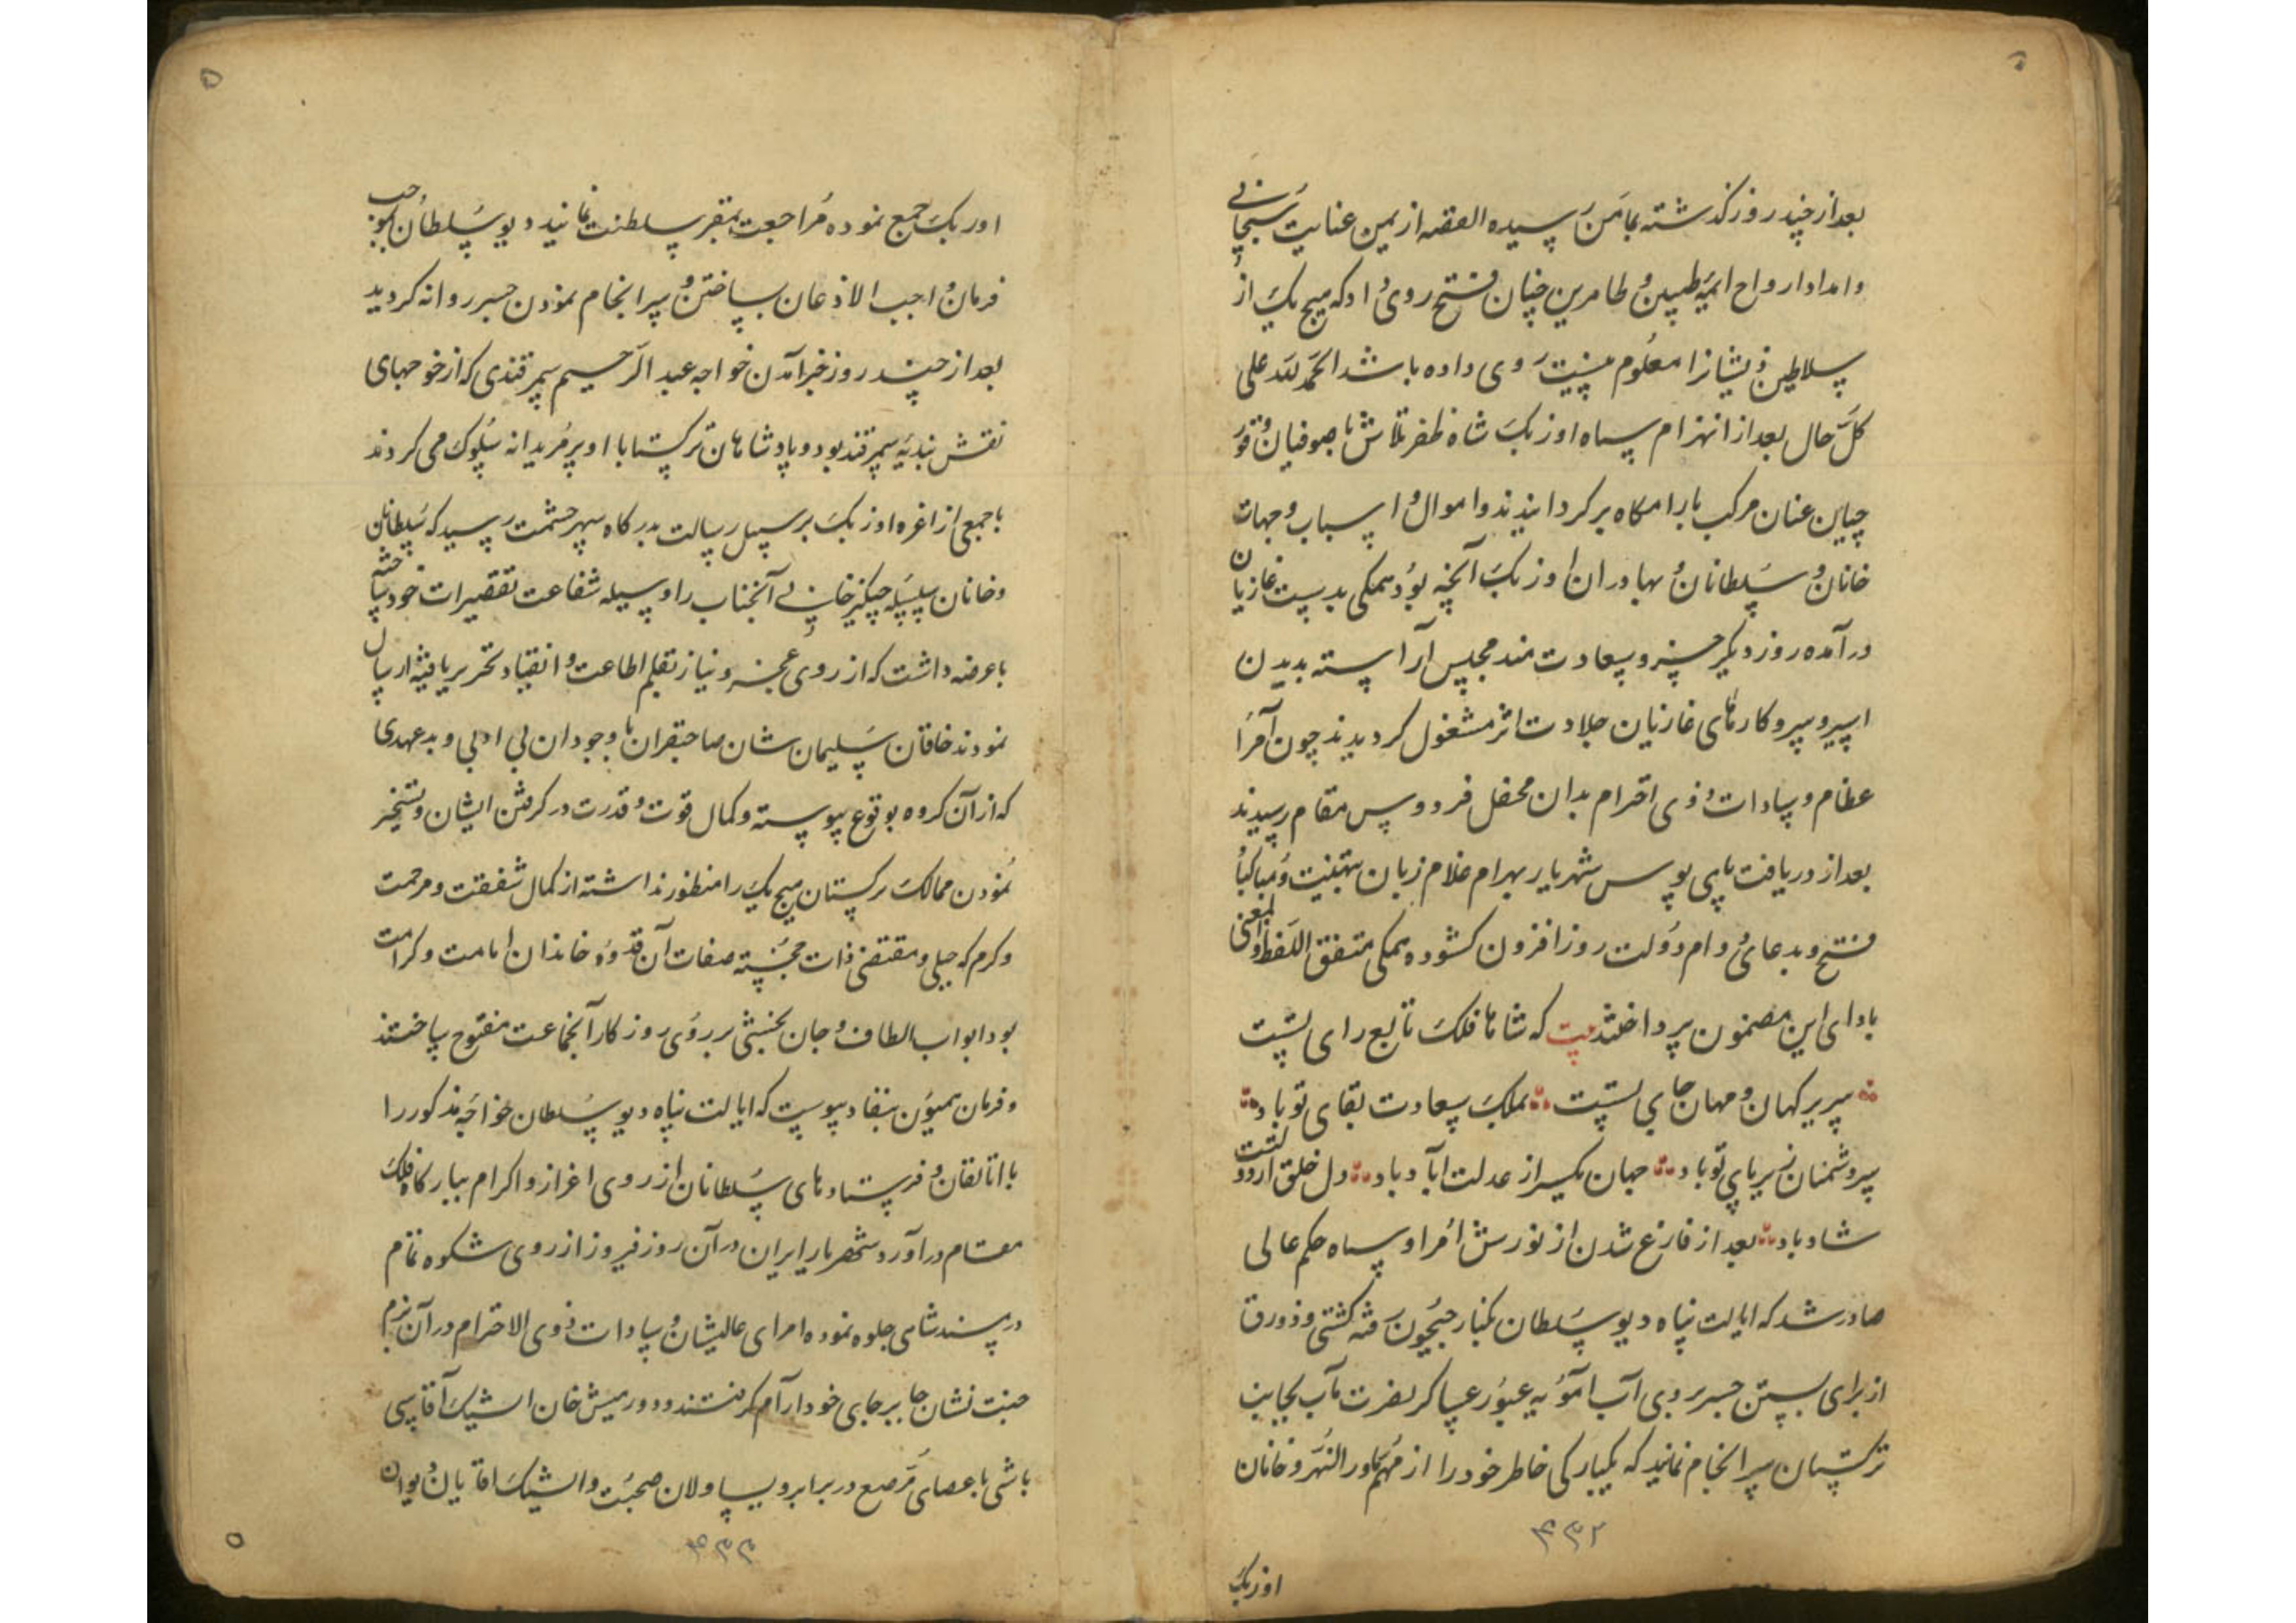 بعد از چند روز گذشته بمامن رسیده القصه از یمن عنایت سبحانی
و امداد ارواح ائمه طیبین و طاهرین چنان فتح روی داد که هیچ یک از
سلاطین ذیشانرا معلوم نیست روی داده باشد الحمد لله علی
کل حال بعد از انهزام سپاه اوزبک شاه ظفر تلاش با صوفیان و قور
چیان عنان مرکب بارامکاه برکردانیدند و اموال و اسباب و جهات
خانان و سلطانان و بهادران اوزبک آنچه بود همکی بدست غازیان
درآمده روز دیکر خسرو سعادت مند مجلس آراسته بدیدن
اسیر و سر و کارنمای غازیان جلادت اثر مشغول کردیدند چون امرا
عظام و سادات ذوی احترام بدان محفل فردوس مقام رسیدند
بعد از دریافت پای بوس شهریار بهرام غلام زبان بتهنیت و مبارکباد
فتح و بدعای دوام دولت روز افزون کشوده همکی متفق اللفظ والمعنی
بادای این مضمون پرداختند بیت که شاها فلک تابع رای تست
سریر کهان و مهان جای تست بملک سعادت بقای تو باد
سر دشمنان زیر پای تو باد جهان یکسر از عدلت آباد باد دل خلق از دولتت
شاد باد بعد از فارغ شدن از نوزش امرا و سپاه حکم عالی
صادر شد که ایالت پناه دیو سلطان بکنار جیحون رفته کشتی و ذورق
از برای بستن جسر بروی آب آمویه عبور عساکر نصرت مآب بجانب
ترکستان سرانجام نمایند که یکبارکی خاطر خود را از مهم ماورالنهر و خانان
۴۳۲
اوزبک
اوربک جمع نموده مراجعت بمقر سلطنت نمایند دیو سلطان بموجب
فرمان واجب الاذعان بساختن و سرانجام نمودن جسر روانه کردید
بعد از چند روز خبر آمدن خواجه عبد الرحیم سمرقندی که از خوجهای
نقش بندیه سمرقند بود و پادشاهان ترکستان با او پر مریدانه سلوک می کردند
با جمعی از اعزه اوزبک بر سبیل رسالت بدرکاه سپهر حشمت رسید که سلطانان
و خانان سلسله چنکیزخانی آنجناب را وسیله شفاعت تقصیرات خود ساخته
با عرضه داشت که از روی عجز و نیاز بقلم اطاعت و انقیاد تحریر یافته ارسال
نمودند خاقان سلیمان شان صاحبقران با وجود ان بی ادبی و بدعهدی
که از آن کروه بوقوع پیوسته و کمال قوت و قدرت در کرفتن ایشان و تسخیر
نمودن ممالک ترکستان هیچ یک را منظور نداشته از کمال شفقت و مرحمت
و کرم که جبلی و مقتضی ذات خجسته صفات آن قدوه خاندان امامت و کرامت
بود ابواب الطاف و جان بخشی بر روی روزکار آنجماعت مفتوح ساختند
و فرمان همیون بنفاد پیوست که ایالت پناه دیو سلطان خواجه مذکور را
با اتالقان و فرستادهای سلطانان از روی اعزاز و اکرام ببارکاه فلک
مقام درآورد شهریار ایران در آن روز فیروز از روی شکوه تمام
در مسند شاهی جلوه نموده امرای عالیشان و سادات ذوی الاحترام در آن بزم
جنت نشان جا بر جای خود آرام کرفتند و دورمیش خان اشیک آقاسی
باشی با عصای مرصع در برابر و یساولان صحبت و الشیک اقایان دیوان
۴۳۳